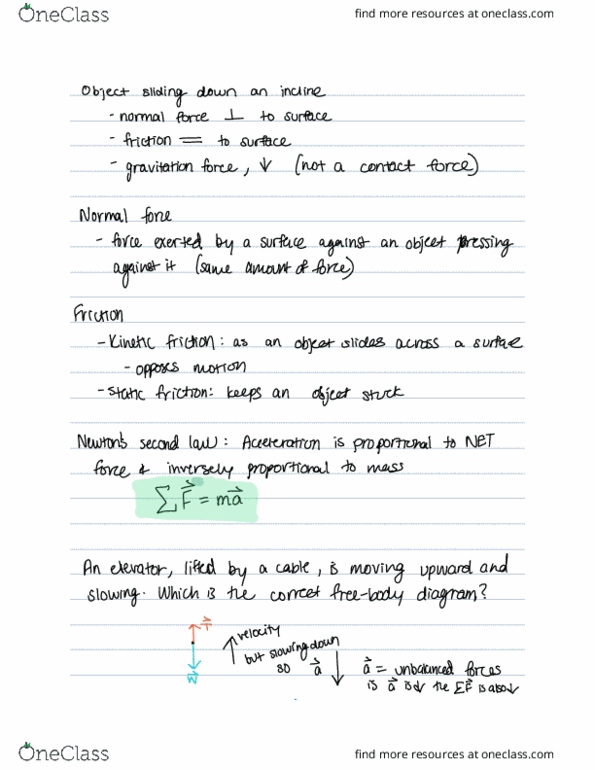 OneClass
find more resources at oneclass.com
Object sliding down an incline
- normal force ⊥ to surface
- friction = to surface
- gravitation force, ↓ (not a contact force)
Normal force
- force exerted by a surface against an object pressing
against it (same amount of force)
Friction
- Kinetic friction: as an object slides across a surface
- opposes motion
- static friction: keeps an object stuck
Newton's second law: Acceleration is proportional to NET
force & inversely proportional to mass
∑F⃗ = ma⃗
An elevator, lifted by a cable, is moving upward and
slowing. Which is the correct free-body diagram?
T⃗
W⃗
↑ velocity
but slowing down
so a⃗ ↓
a⃗ = unbalanced forces
is a⃗ is↓ the ΣF⃗ is also↓
OneClass
find more resources at oneclass.com